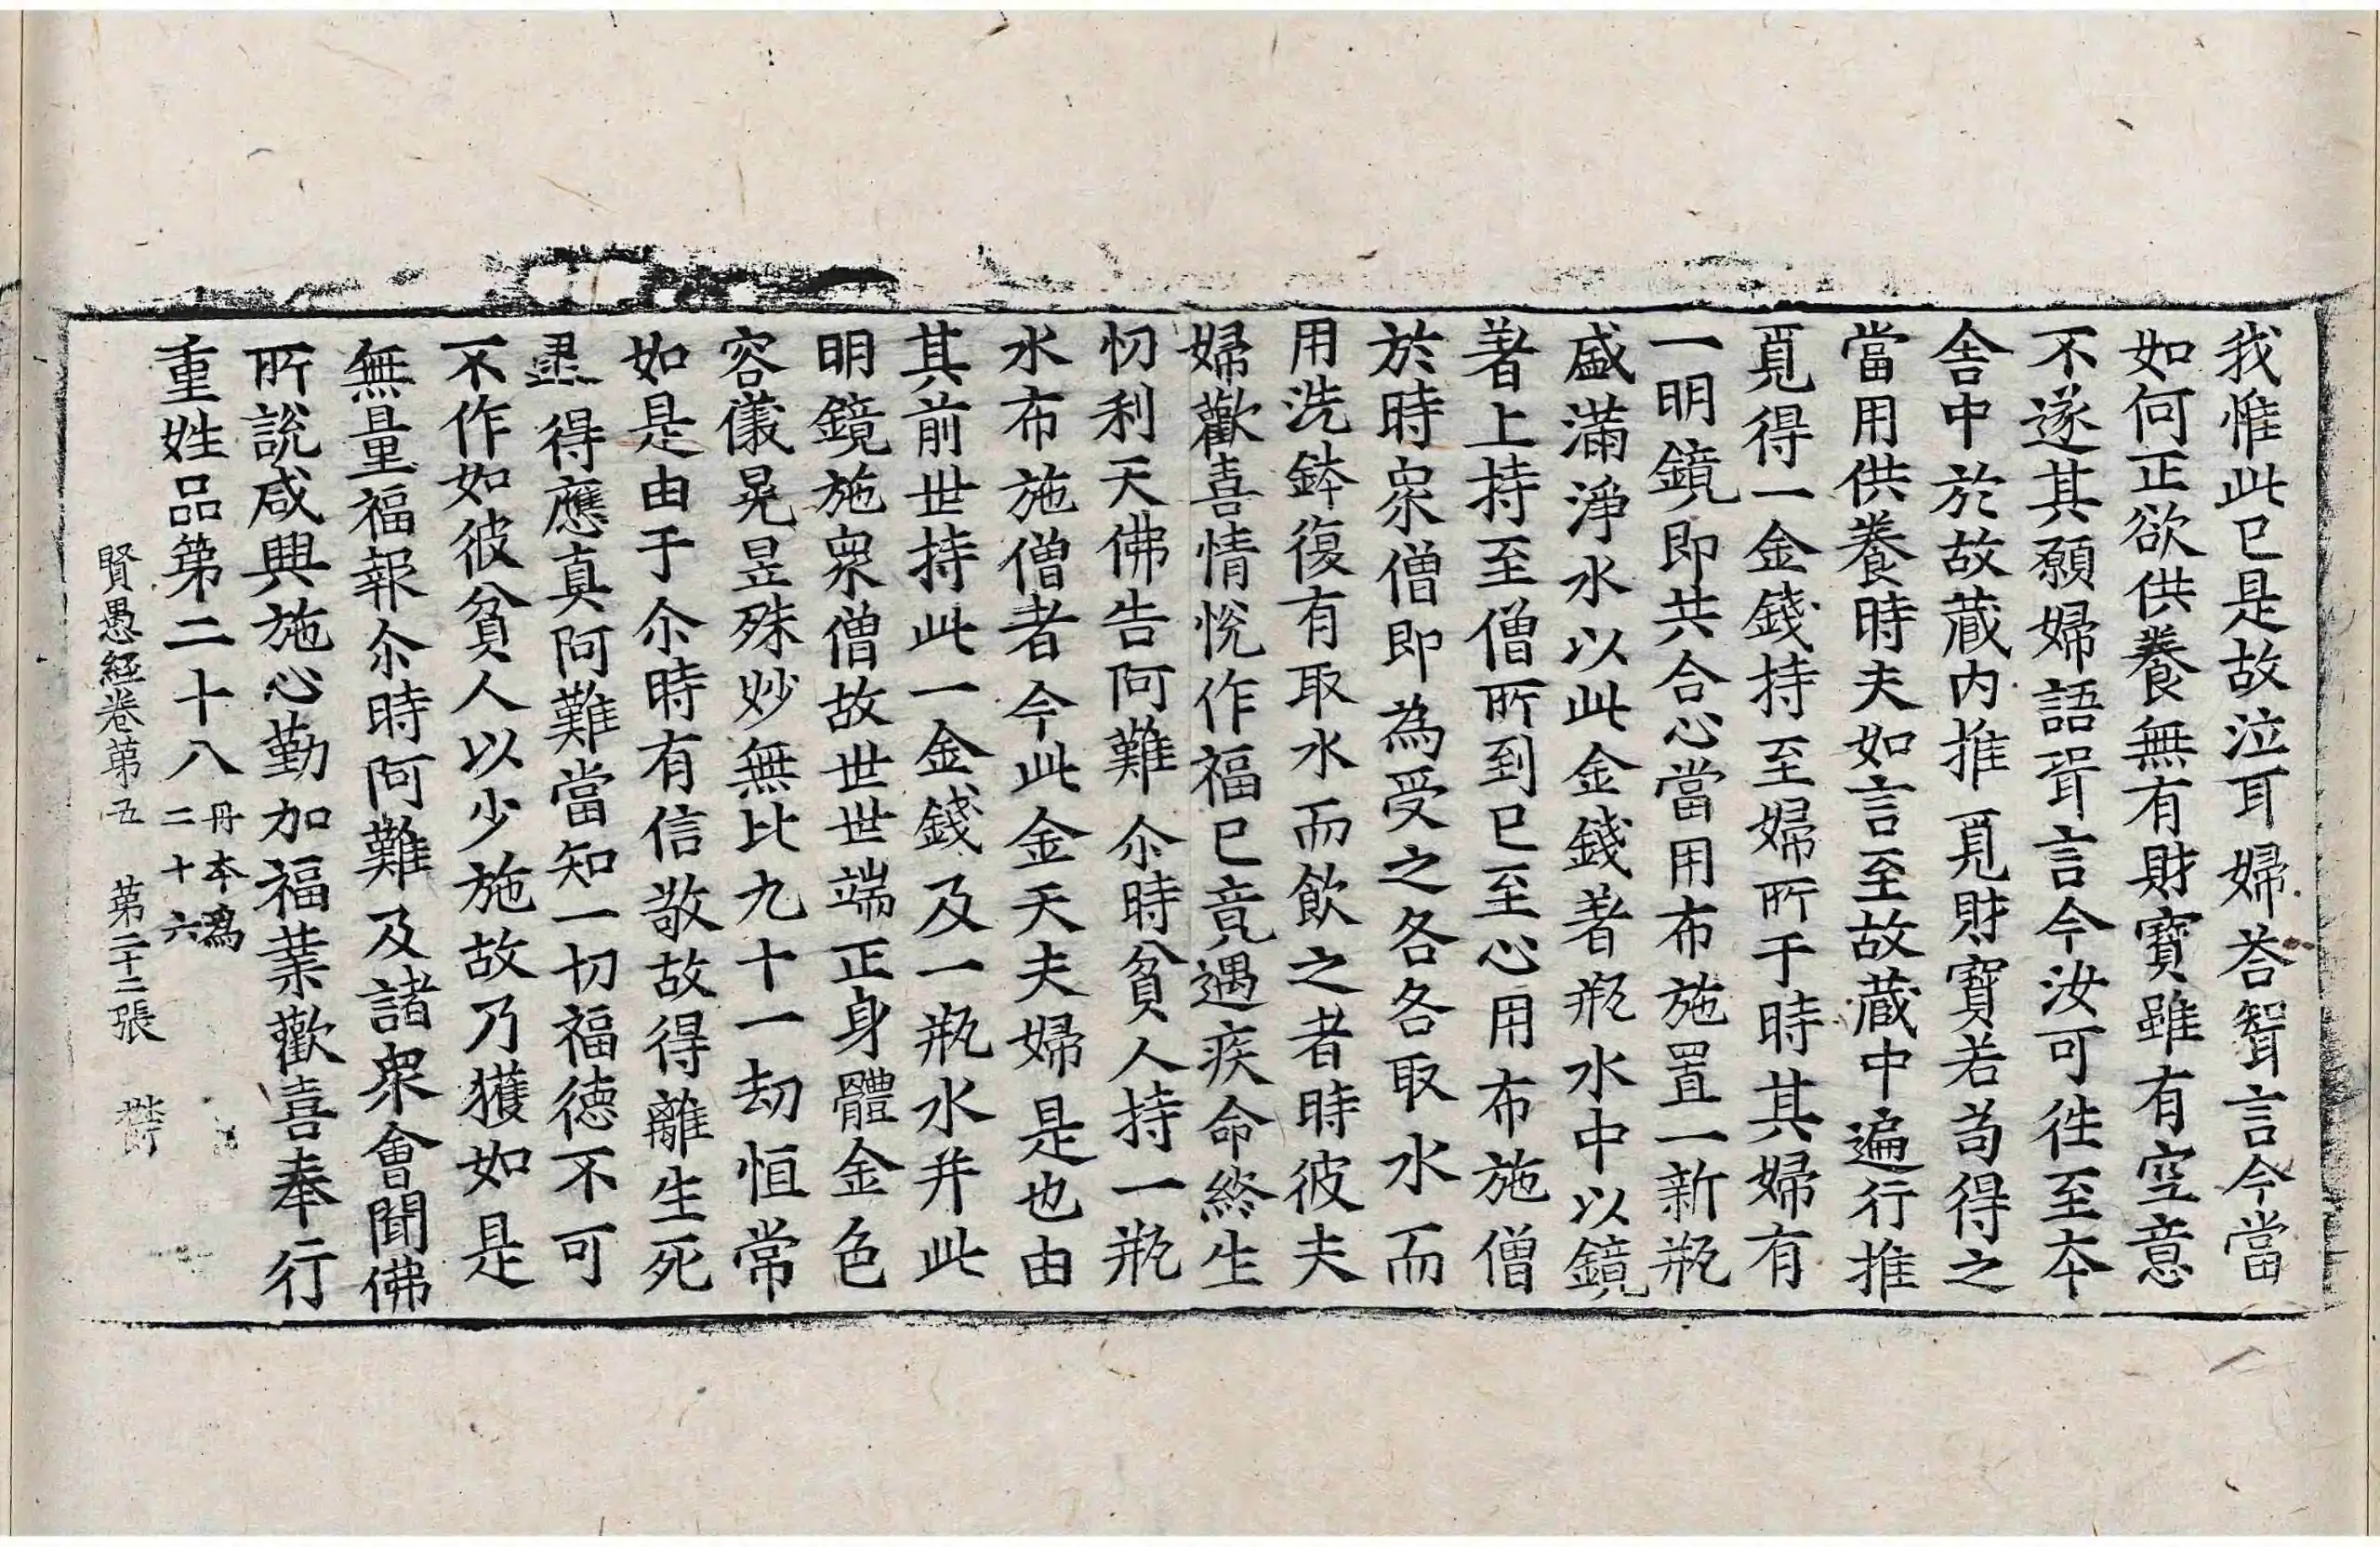 我惟此已是故泣耳婦荅聟言今當
如何正欲供養無有財寶雖有空意
不遂其願婦語聓言今汝可往至本
舎中於故蔵内推覓財寶若苟得之
當用供養時夫如言至故蔵中遍行推
覓得一金錢持至婦所于時其婦有
一明鏡即共合心當用布施置一新瓶
盛滿淨水以此金錢著瓶水中以鏡
著上持至僧所到已至心用布施僧
於時衆僧即為受之各各取水而
用洗鉢復有取水而飲之者時彼夫
婦歡喜情悅作福已竟遇疾命終生
忉利天佛告阿難尒時貧人持一瓶
水布施僧者今此金天夫婦是也由
其前世持此一金錢及一瓶水并此
明鏡施衆僧故世世端正身體金色
容儀晃昱殊妙無比九十一劫恒常
如是由于尒時有信敬故得離生死
逮得應真阿難當知一切福德不可
不作如彼貧人以少施故乃獲如是
無量福報尒時阿難及諸衆會聞佛
所說咸興施心勤加福業歡喜奉行
重姓品第二十八 丹本為二十六
賢愚經卷第五 第二十二張